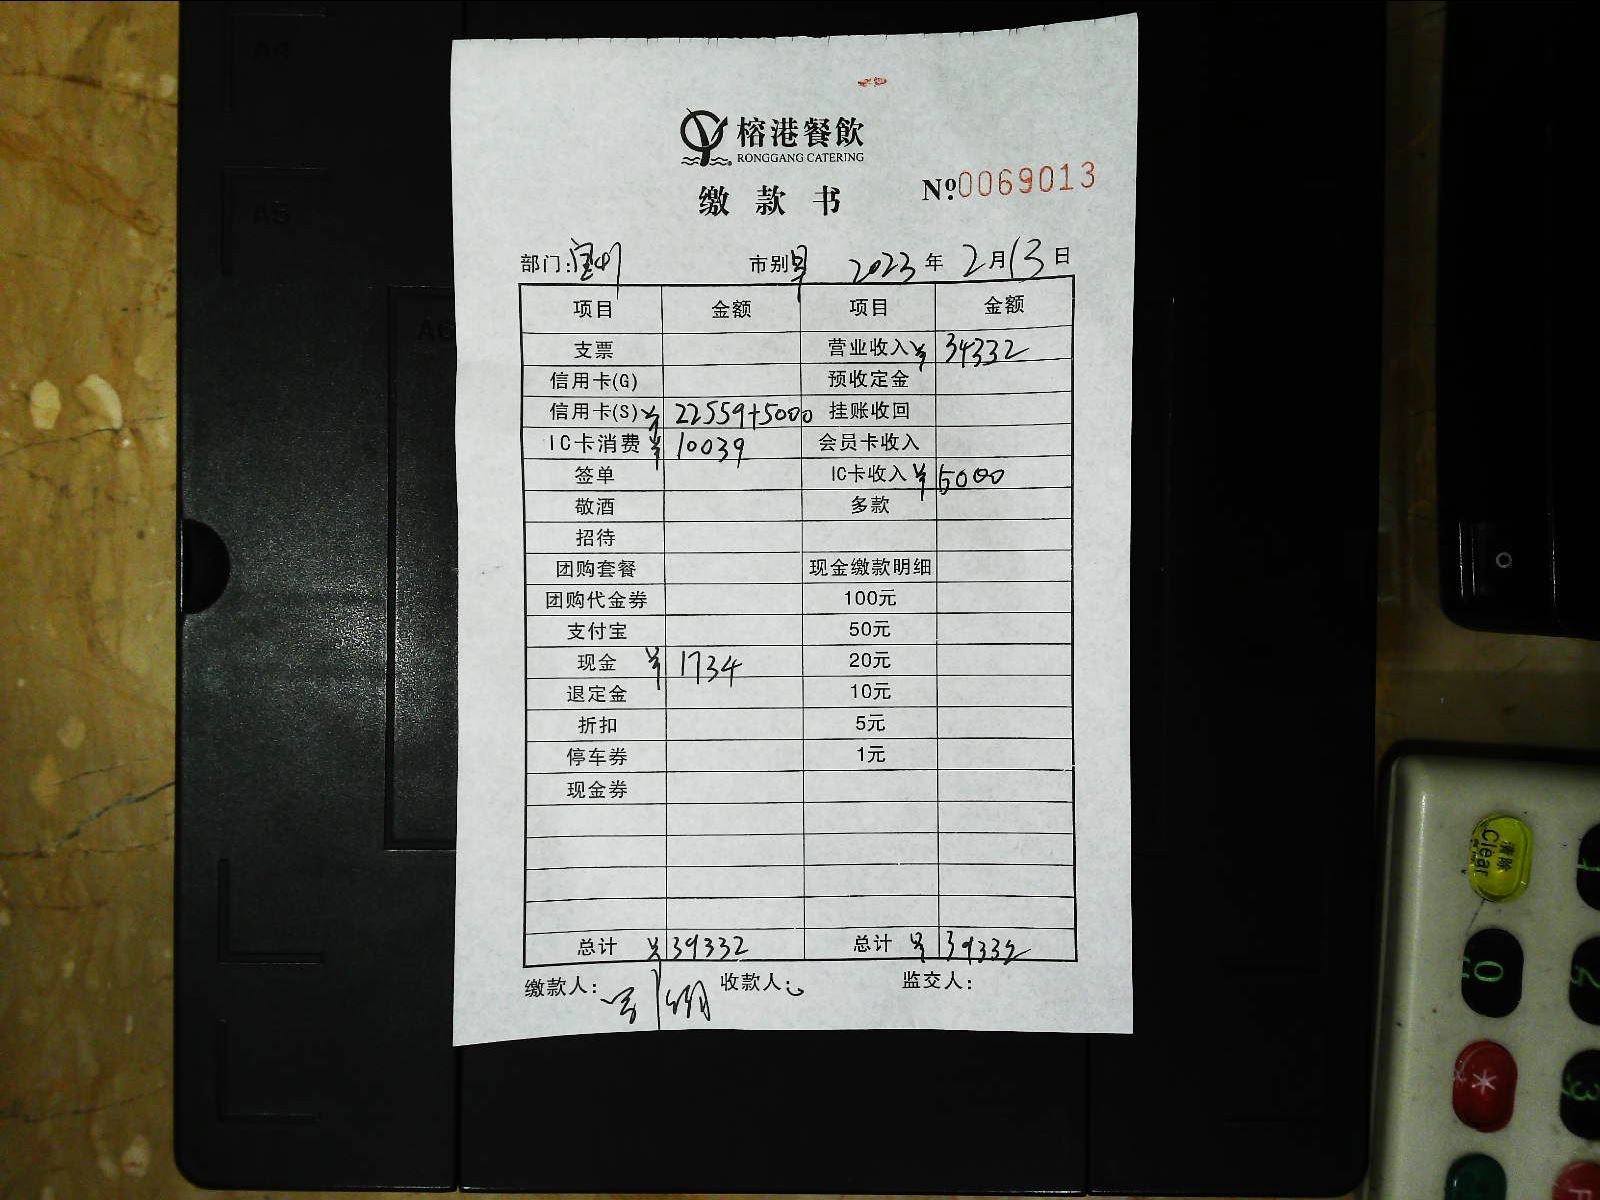 榕港餐飲
RONGGANG CATERING
缴款书
Nº 0069013
部门: 市别早 2023年2月13日
项目 金额 项目 金额
支票 营业收入 ¥34332
信用卡(G) 预收定金
信用卡(S) ¥22559+5000 挂账收回
IC卡消费 ¥10039 会员卡收入
签单 IC卡收入 ¥5000
敬酒 多款
招待
团购套餐 现金缴款明细
团购代金券 100元
支付宝 50元
现金 ¥1734 20元
退定金 10元
折扣 5元
停车券 1元
现金券
总计 ¥39332 总计 ¥39332
缴款人: 收款人: 监交人:
A4
A5
A6
清除
Clear
0
*